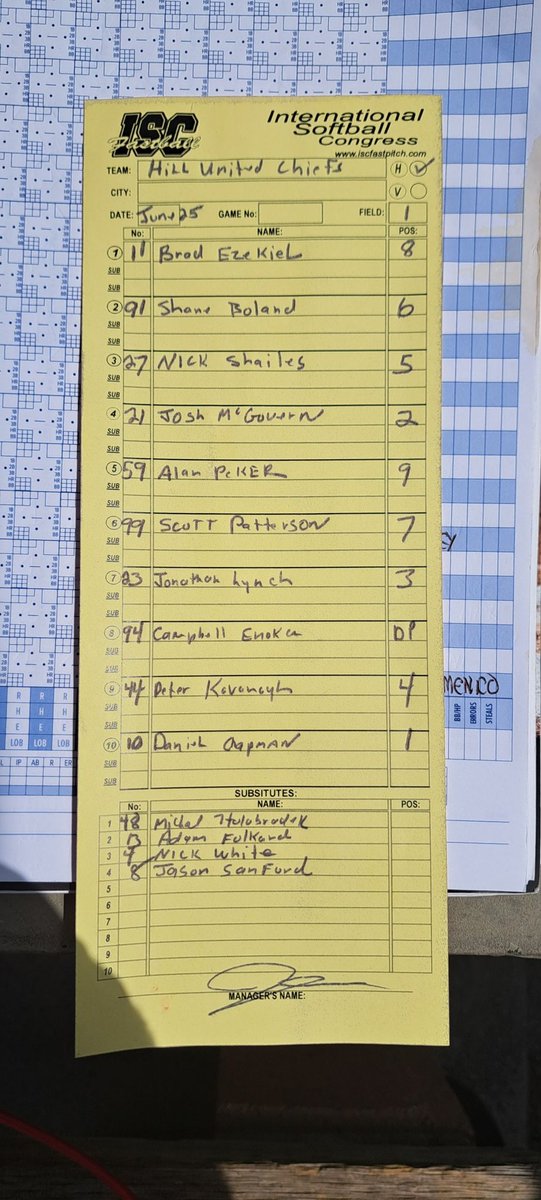 ISC
Fastball
International
Softball
Congress
www.iscfastpitch.com
TEAM: Hill United Chiefs H ✓
CITY: V
DATE: June 25 GAME No: FIELD: 1
No: NAME: POS:
1 11 Brad Ezekiel 8
SUB
SUB
2 91 Shane Boland 6
SUB
SUB
3 27 NICK Shailes 5
SUB
SUB
4 21 Josh McGovern 2
SUB
SUB
5 59 Alan PeKER 9
SUB
SUB
6 99 SCOTT Patterson 7
SUB
SUB
7 23 Jonathan Lynch 3
SUB
SUB
8 94 Campbell Enoka DP
SUB
SUB
9 44 Peter Kavanagh 4
SUB
SUB
10 10 Daniel Chapman 1
SUB
SUB
SUBSITUTES:
No: NAME: POS:
1 48 Michal Holobradek
2 13 Adam Folkard
3 4 NICK White
4 8 Jason SanFord
5
6
7
8
9
10
MANAGER'S NAME:
MENCO
R H E LOB
R H E LOB
R H E LOB
IP AB R ER
BB/HP
ERRORS
STEALS